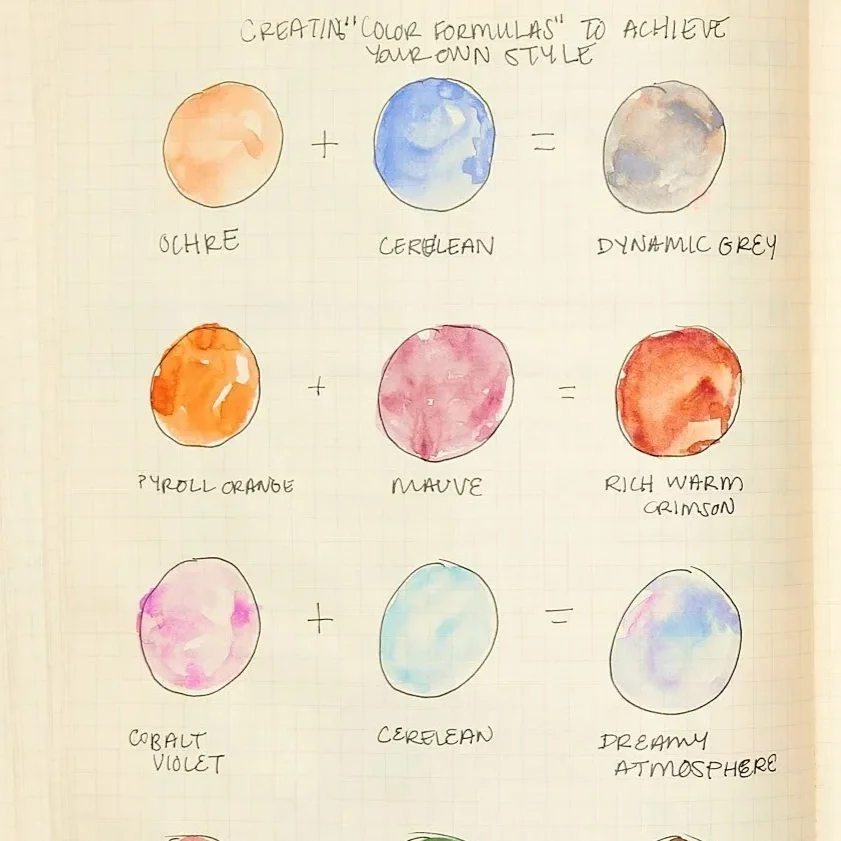 CREATIN "COLOR FORMULAS" TO ACHIEVE
YOUR OWN STYLE
+ =
OCHRE CERELEAN DYNAMIC GREY
+ =
PYROLL ORANGE MAUVE RICH WARM
CRIMSON
+ =
COBALT CERELEAN DREAMY
VIOLET ATMOSPHERE